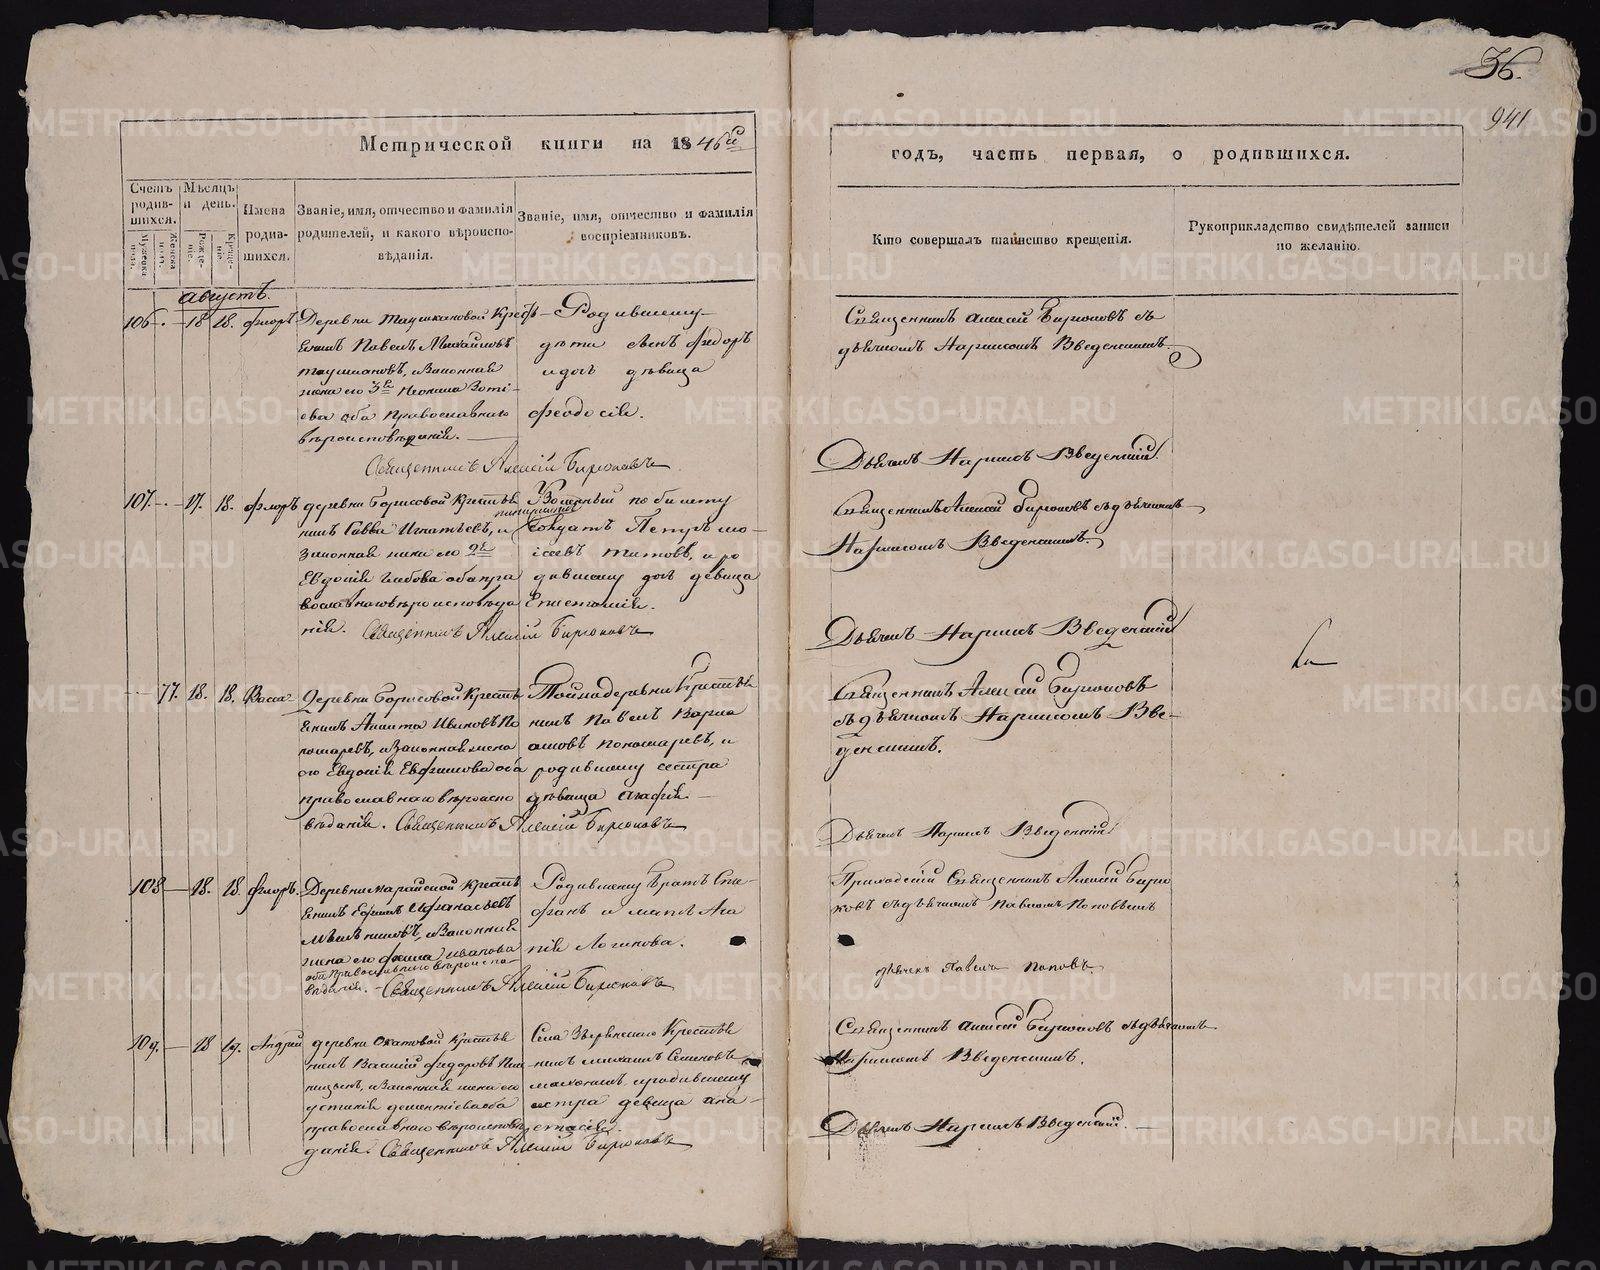 36.
941
Метрической книги на 1846й
годъ, часть первая, о родившихся.
Счетъ родив-шихся.
Мужеска пола.
Женска пола.
Мѣсяцъ и день.
Рожде-ніе.
Креще-ніе.
Имена родив-шихся.
Званіе, имя, отчество и фамилія
родителей, и какого вѣроиспо-
вѣданія.
Званіе, имя, отчество и фамилія
воспріемниковъ.
Кто совершалъ таинство крещенія.
Рукоприкладство свидѣтелей записи
по желанію.
августъ.
106 18 18. флоръ
Деревни Таушкановой Крест
янинъ Павелъ Михайловъ
Таушкановъ, и Законная
жена его 3я Зоти-
ева оба Православнаго
вѣроисповѣданія.
Священникъ Алексій Бирюковъ
Родившему
дѣти сынъ Федоръ
и дочь дѣвица
Феодосія.
Священникъ Алексей Бирюковъ съ
дьячкомъ Наркисомъ Введенскимъ.
Дьячекъ Наркисъ Введенскій.
107 17. 18. флоръ
деревни Борисовой Крестья
нинъ Савва Игнатьевъ, и
Законная жена его 2я
Евдокія Глебова оба пра
вославнаго вѣроисповѣда
нія. Священникъ Алексій Бирюковъ
Уволенный по билету
Солдатъ Петръ Мо-
ісеевъ Титовъ, и ро
дившему дочь девица
Священникъ Алексей Бирюковъ съ дьячкомъ
Наркисомъ Введенскимъ.
Дьячекъ Наркисъ Введенскій
77. 18. 18. Васса
Деревни Борисовой Кресть
янинъ Никита Ивановъ По
номаревъ, и Законная жена
его Евдокія Евфимова оба
православнаго вѣроиспо
вѣданія. Священникъ Алексій Бирюковъ
Той же деревни Крестья
нинъ Павелъ Варла
амовъ Пономаревъ, и
родившему сестра
дѣвица Агафія.
Священникъ Алексей Бирюковъ
съ дьячкомъ Наркисомъ Вве-
денскимъ.
Дьячекъ Наркисъ Введенскій
108 18. 18 флоръ.
Деревни Крестья
янинъ Ефимъ Афанасьевъ
Мѣльниковъ, и Законная
жена его Иванова
оба Православнаго вѣроиспо-
вѣданія. Священникъ Алексій Бирюковъ
Родившему братъ Сте-
фанъ и мать Ага
пія Логинова.
Приходскій Священникъ Алексей Бирю
ковъ съ дьячкомъ Павломъ Поповымъ
дьячекъ Павелъ Поповъ
109. 18 19. Андрей
деревни Окатовой Крестья
нинъ Василій Федоровъ
и Законная жена его
Устинія Дементіева оба
православнаго вѣроисповѣ
данія. Священникъ Алексій Бирюковъ
Села Крестья
нинъ Михаилъ Семеновъ
и родившему
сестра девица Ана-
стасія.
Священникъ Алексей Бирюковъ съ дьячкомъ
Наркисомъ Введенскимъ.
Дьячекъ Наркисъ Введенскій.
METRIKI.GASO-URAL.RU